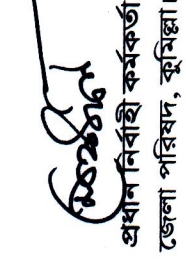 প্রধান নির্বাহী কর্মকর্তা
জেলা পরিষদ, কুমিল্লা।